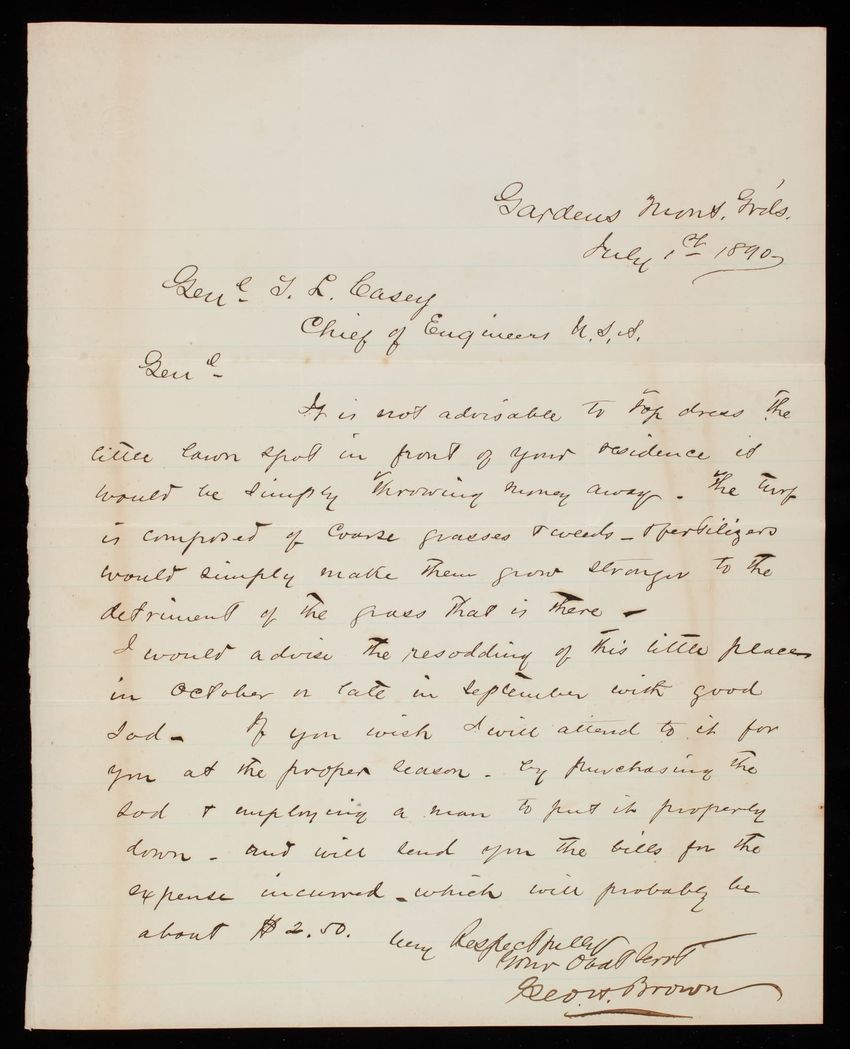 Gardens Mont. Grds.
July 1st 1890
Genl T. L. Casey
Chief of Engineers U.S.A.
Genl
It is not advisable to top dress the
little lawn spot in front of your residence it
would be simply throwing money away. The turf
is composed of coarse grasses & weeds - & fertilizers
would simply make them grow stronger to the
detriment of the grass that is there -
I would advise the resodding of this little place
in October or late in September with good
sod - If you wish I will attend to it for
you at the proper season - by purchasing the
sod & employing a man to put it properly
down - and will send you the bills for the
expense incurred - which will probably be
about $2.50.
Very Respectfully
Your Obdt Servt
Geo. H. Brown